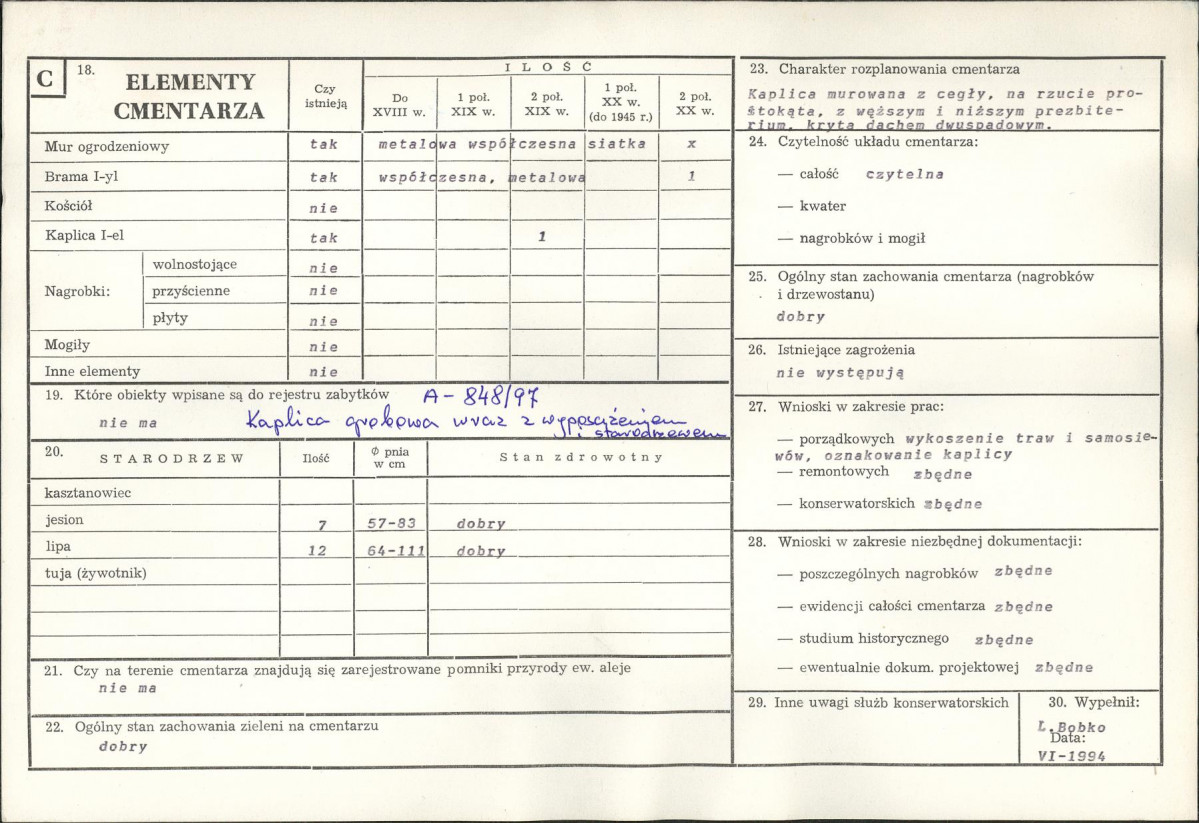 C
18. ELEMENTY CMENTARZA
Czy istnieją
ILOŚĆ
Do XVIII w.
1 poł. XIX w.
2 poł. XIX w.
1 poł. XX w. (do 1945 r.)
2 poł. XX w.
Mur ogrodzeniowy tak metalowa współczesna siatka x
Brama I-yl tak współczesna, metalowa 1
Kościół nie
Kaplica I-el tak 1
Nagrobki:
wolnostojące nie
przyścienne nie
płyty nie
Mogiły nie
Inne elementy nie
19. Które obiekty wpisane są do rejestru zabytków A-848/97
nie ma Kaplica grobowa wraz z wyposażeniem
i starodrzewem
20. STARODRZEW Ilość Ø pnia w cm Stan zdrowotny
kasztanowiec
jesion 7 57-83 dobry
lipa 12 64-111 dobry
tuja (żywotnik)
21. Czy na terenie cmentarza znajdują się zarejestrowane pomniki przyrody ew. aleje
nie ma
22. Ogólny stan zachowania zieleni na cmentarzu
dobry
23. Charakter rozplanowania cmentarza
Kaplica murowana z cegły, na rzucie pro-
stokąta, z węższym i niższym prezbite-
rium, kryta dachem dwuspadowym.
24. Czytelność układu cmentarza:
— całość czytelna
— kwater
— nagrobków i mogił
25. Ogólny stan zachowania cmentarza (nagrobków
i drzewostanu)
dobry
26. Istniejące zagrożenia
nie występują
27. Wnioski w zakresie prac:
— porządkowych wykoszenie traw i samosie-
wów, oznakowanie kaplicy
— remontowych zbędne
— konserwatorskich zbędne
28. Wnioski w zakresie niezbędnej dokumentacji:
— poszczególnych nagrobków zbędne
— ewidencji całości cmentarza zbędne
— studium historycznego zbędne
— ewentualnie dokum. projektowej zbędne
29. Inne uwagi służb konserwatorskich
30. Wypełnił:
Ł.Bobko
Data:
VI-1994